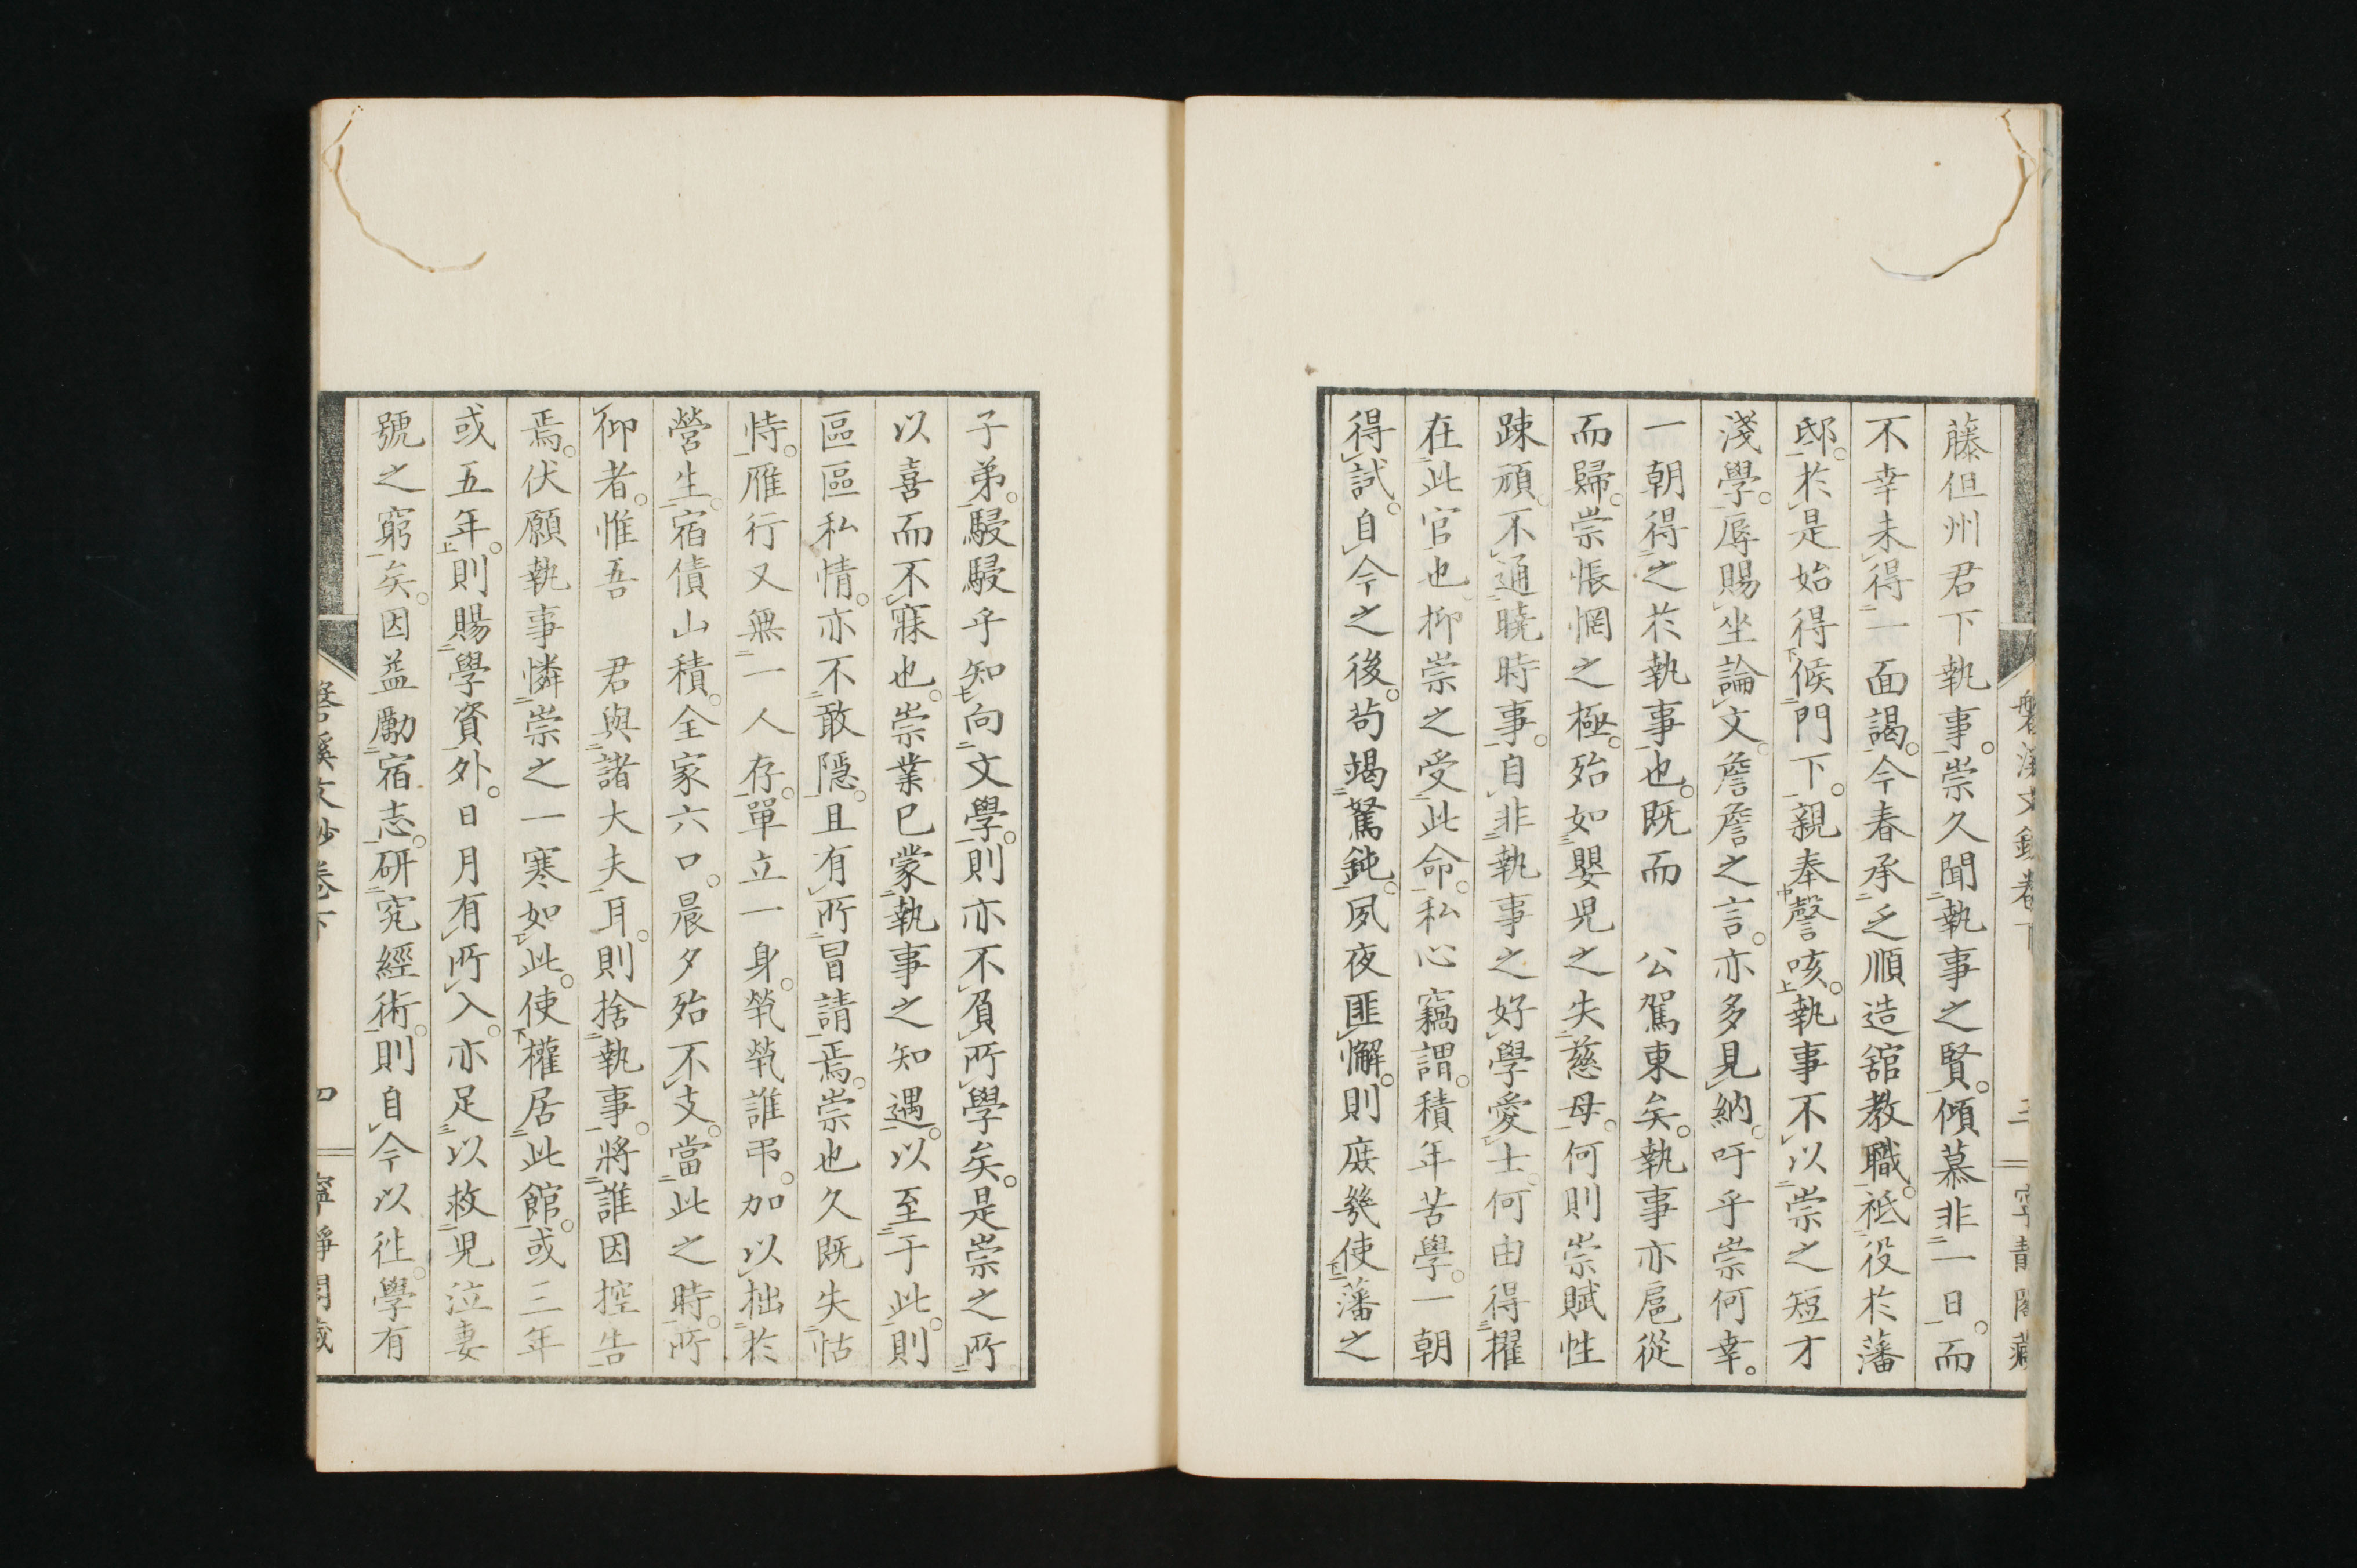 藤但州君下執事。崇久聞執事之賢。傾慕非一日。而
不幸未得一面謁。今春承乏順造舘教職。祗役於藩
邸。於是始得候門下。親奉謦咳。執事不以崇之短才
淺學。辱賜坐論文。詹詹之言。亦多見納。吁乎崇何幸。
一朝得之於執事也。既而　公駕東矣。執事亦扈從
而歸。崇悵惘之極。殆如嬰児之失慈母。何則崇賦性
踈頑。不通曉時事。自非執事之好學愛士。何由得擢
在此官也。抑崇之受此命。私心竊謂。積年苦學。一朝
得試。自今之後。苟竭駑鈍。夙夜匪懈。則庶幾使藩之
子弟。駸駸乎知向文學。則亦不負所學矣。是崇之所
以喜而不寐也。崇業已蒙執事之知遇。以至于此。則
區區私情。亦不敢隱。且有所冒請焉。崇也久既失怙
恃。雁行又無一人存。單立一身。煢煢誰弔。加以拙於
營生。宿債山積。全家六口。晨夕殆不支。當此之時。所
仰者。惟吾　君與諸大夫耳。則捨執事。將誰因控告
焉。伏願執事憐崇之一寒如此。使權居此館。或三年
或五年。則賜學資外。日月有所入。亦足以救児泣妻
號之窮矣。因益勵宿志。研究經術。則自今以往。學有
文 卷下
三
四